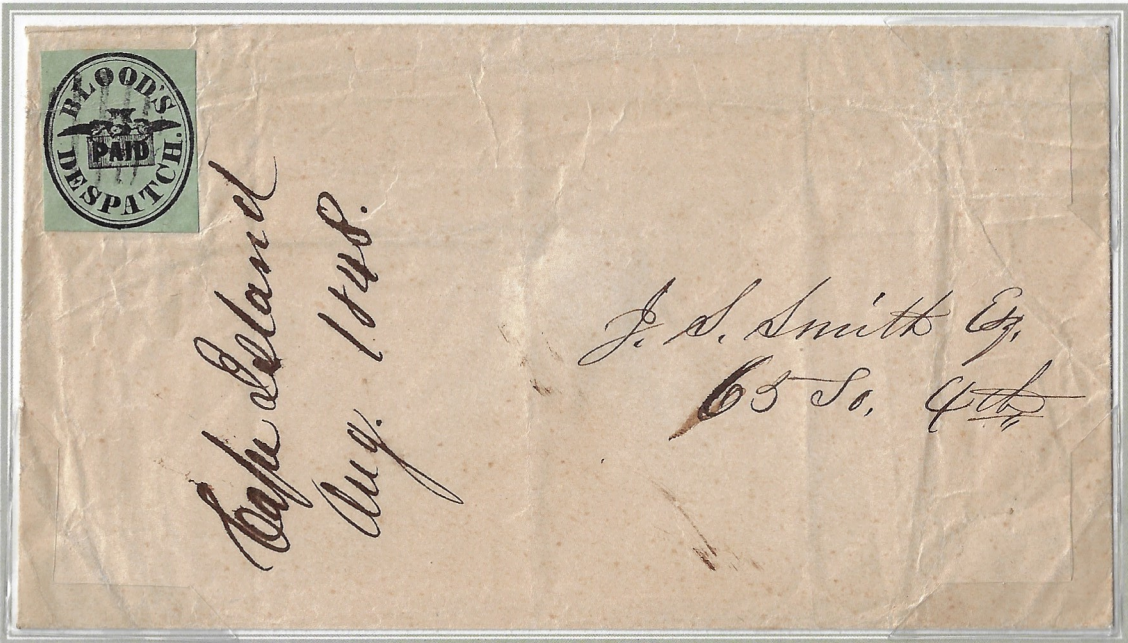 BLOOD'S
PAID
DESPATCH.
Cape Island
Aug. 1848.
J. S. Smith Eq.
65 So. 4th